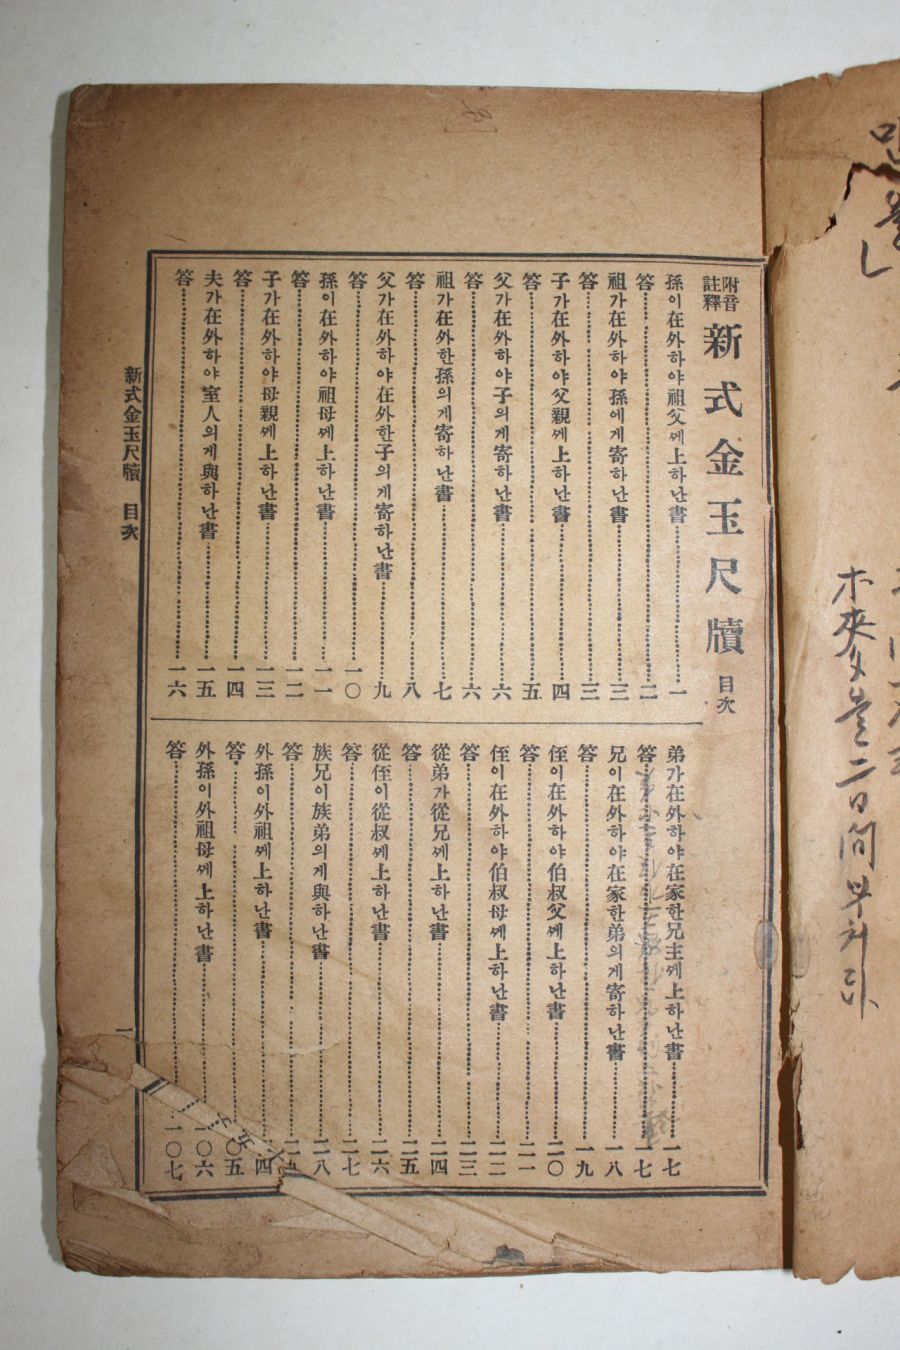 附音
註釋
新式金玉尺牘 目次
孫이在外하야祖父께上하난書 一
答 二
祖가在外하야孫에게寄하난書 三
答 三
子가在外하야父親께上하난書 四
答 五
父가在外하야子의게寄하난書 六
答 六
祖가在外한孫의게寄하난書 七
答 八
父가在外하야在外한子의게寄하난書 九
答 一〇
孫이在外하야祖母께上하난書 一一
答 一二
子가在外하야母親께上하난書 一三
答 一四
夫가在外하야室人의게與하난書 一五
答 一六
弟가在外하야在家한兄主께上하난書 一七
答 一七
兄이在外하야在家한弟의게寄하난書 一八
答 一九
侄이在外하야伯叔父께上하난書 二〇
答 二一
侄이在外하야伯叔母께上하난書 二二
答 二三
從弟가從兄께上하난書 二四
答 二五
從侄이從叔께上하난書 二六
答 二七
族兄이族弟의게與하난書 二八
答
外孫이外祖께上하난書
答
外孫이外祖母께上하난書 一〇六
答 一〇七
新式金玉尺牘 目次
一